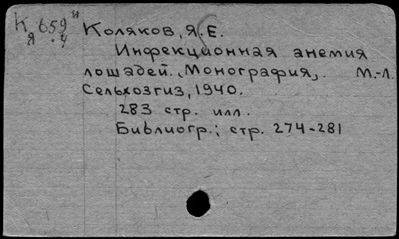 К 659
Я .4
Коляков, Я.Е.
Инфекционная анемия
лошадей. „Монография„. М.-Л.
Сельхозгиз, 1940.
283 стр. илл.
Библиогр.; стр. 274-281